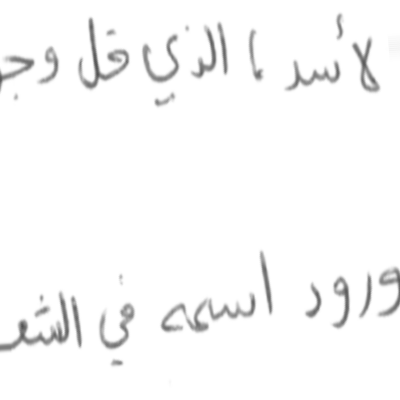 لأسد ، الذي قل وجو
ورود اسمه في الشعـ